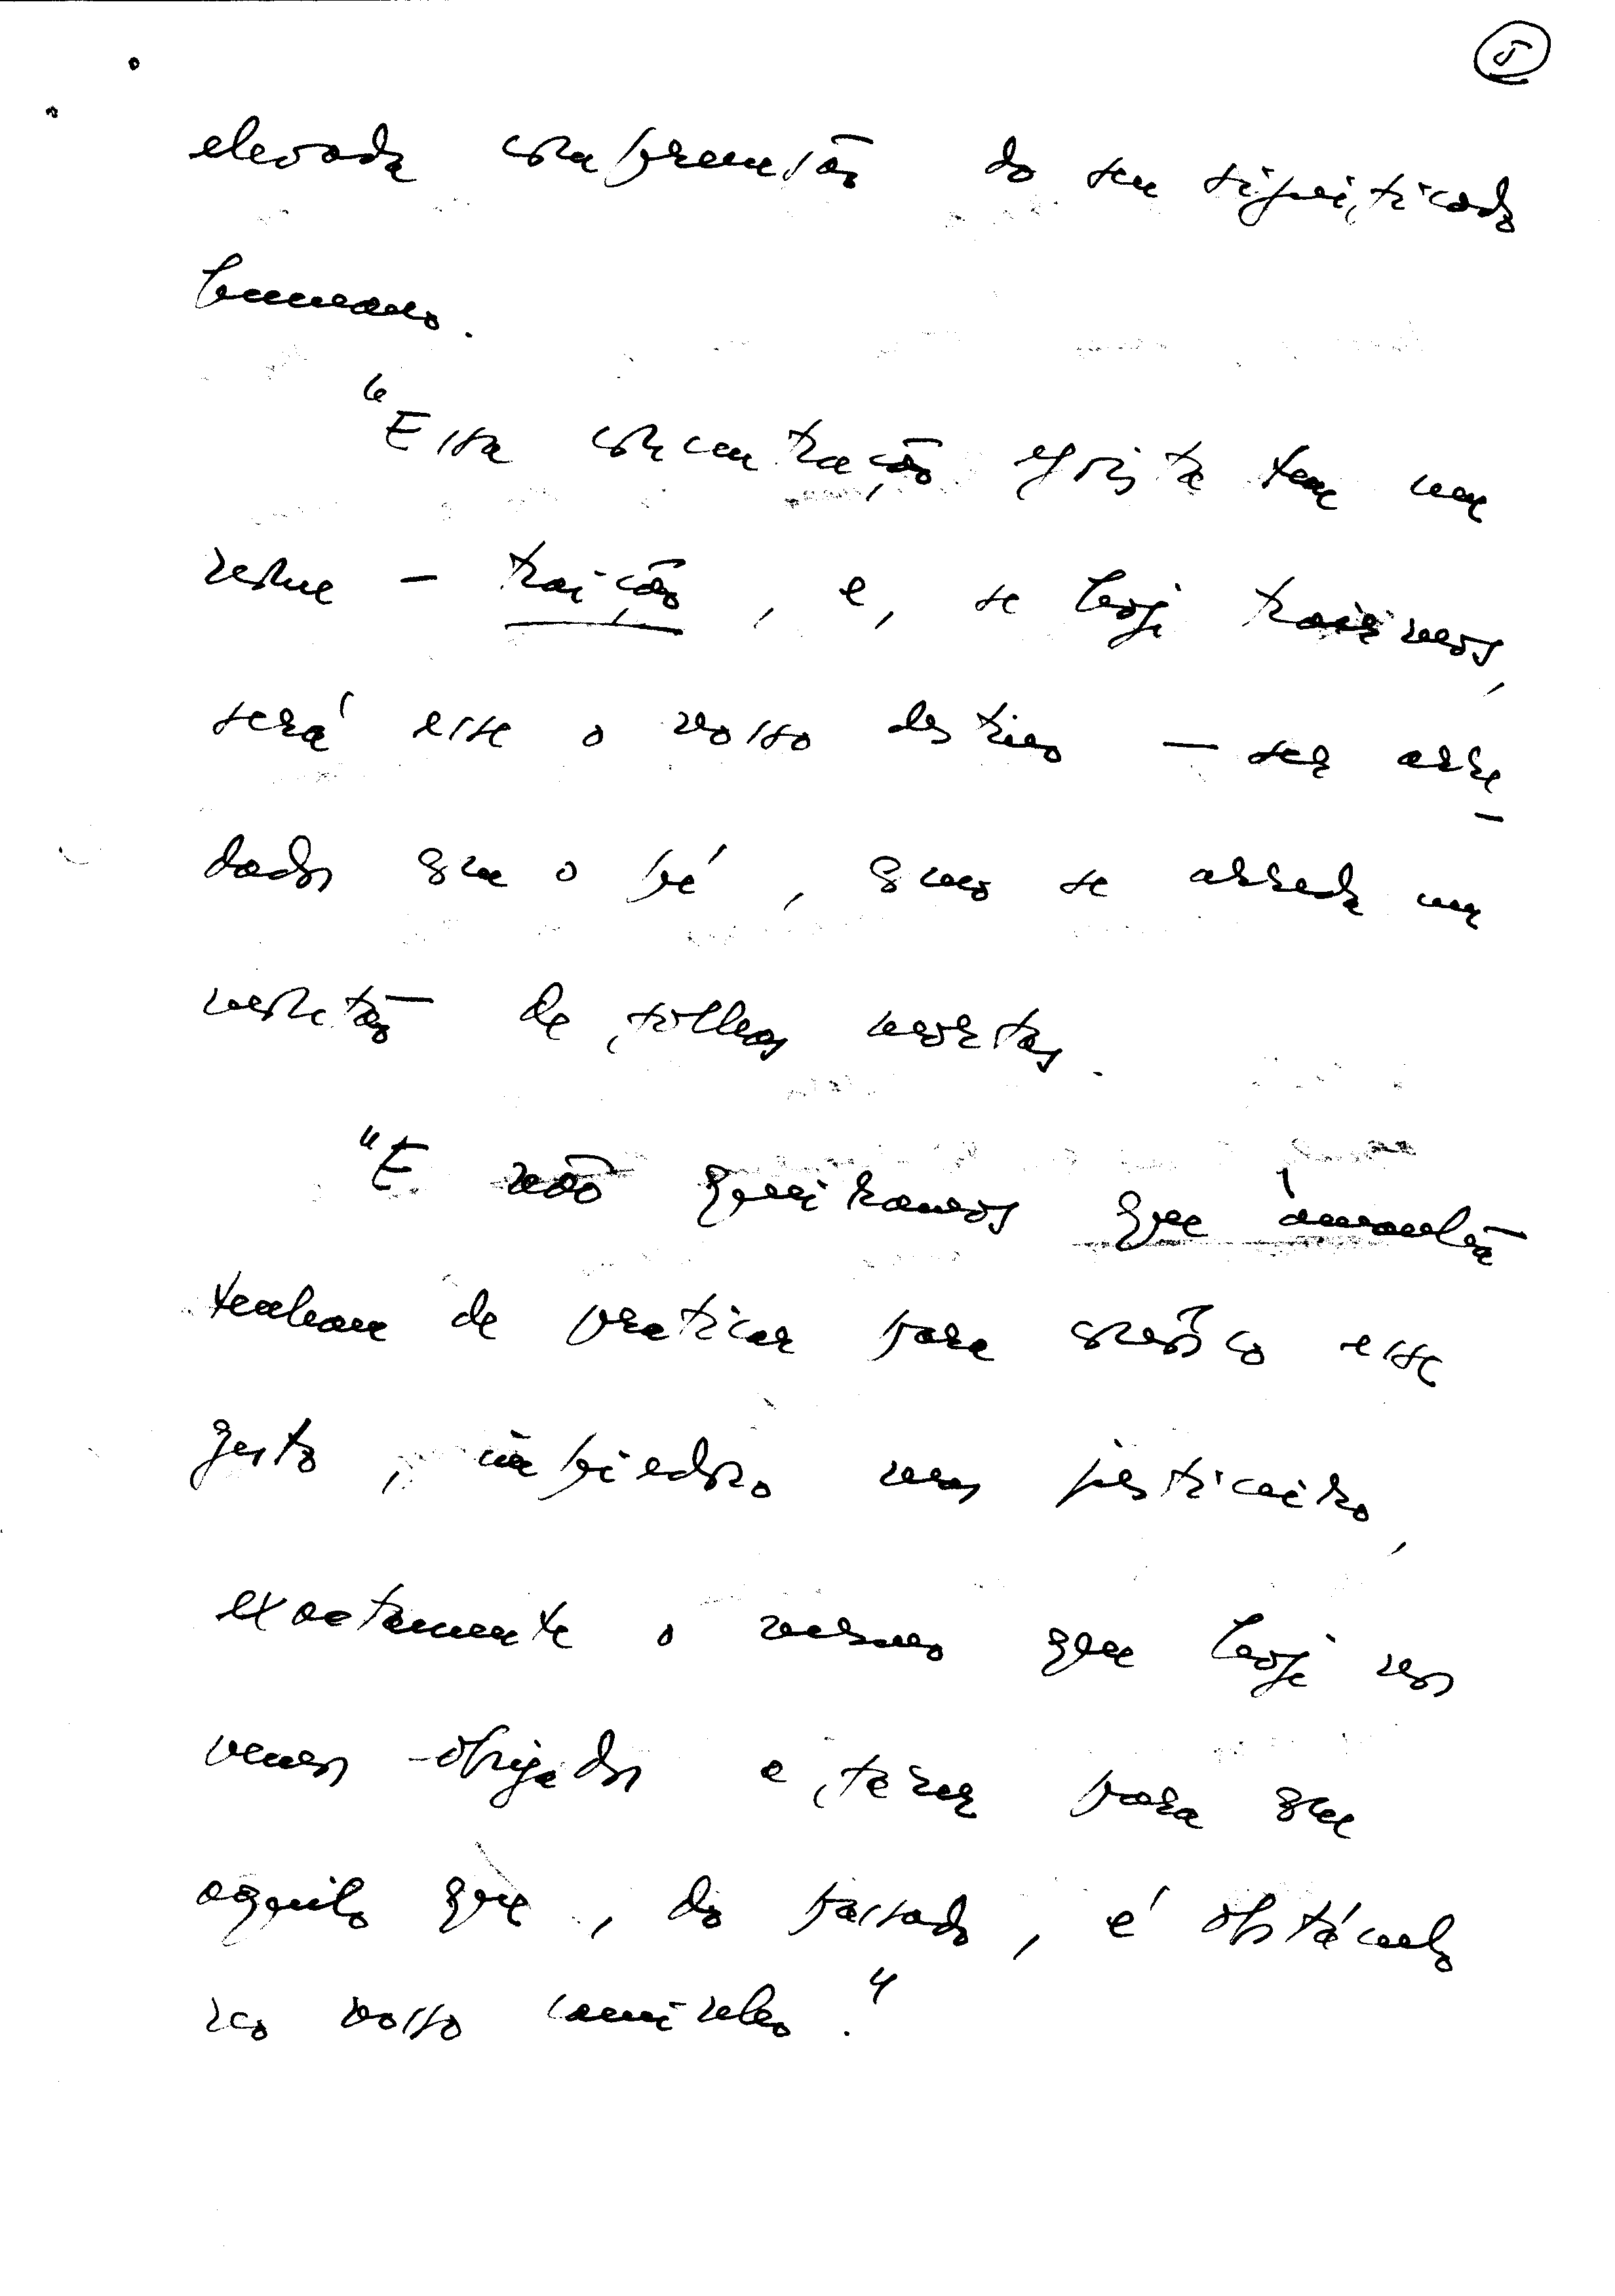 5
elevada compreensão do seu significado
humano.
"Essa concentração egoísta tem um
nome - traição, e, se hoje trairmos,
será esse o nosso destino — ser arre-
dados com o pé, como se arreda um
montão de folhas mortas.
"E não queiramos que àmanhã
tenham de praticar para connosco esse
gesto, impiedoso mas justiceiro,
exactamente o mesmo que hoje nos
vemos obrigados a fazer para com
aquilo que, do passado, é obstáculo
no nosso caminho."